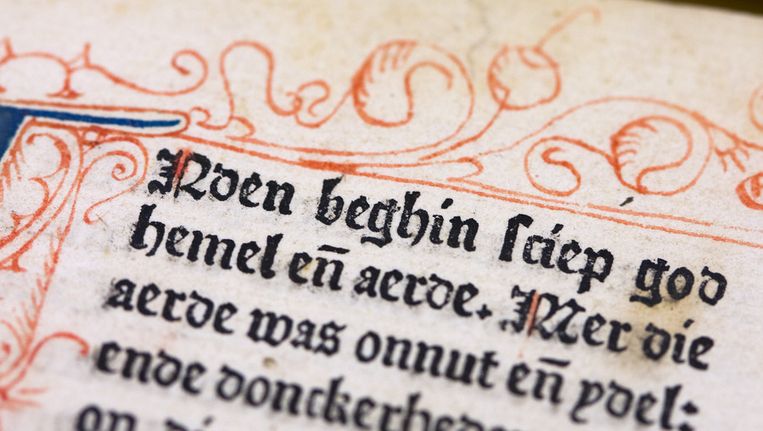 Nden beghin sciep god
hemel en̄ aerde. Mer die
aerde was onnut en̄ ydel:
ende donckerhede
op di